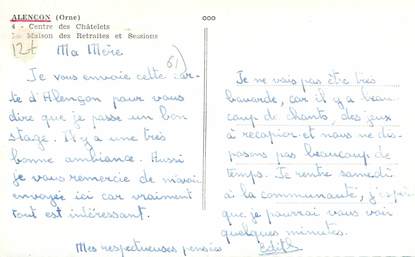 ALENCON (Orne)
4 - Centre des Châtelets
La Maison des Retraites et Sessions
12t
61)
Ma Mère
Je vous envoie cette car-
te d'Alençon pour vous
dire que je passe un bon
stage. Il y a une très
bonne ambiance. Aussi
je vous remercie de m'avoir
envoyée ici car vraiment
tout est intéressant.
Je ne vais pas être très
bavarde, car il y a beau-
coup de chants, des jeux
à recopier et nous ne dis-
posons pas beaucoup de
temps. Je rentre samedi
à la communauté, j'espè
que je pourrai vous voir
quelques minutes.
Mes respectueuses pensées
Edith